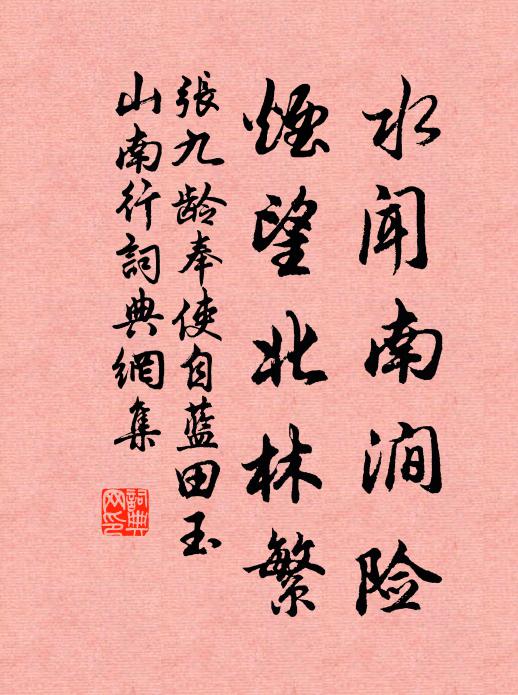 水闻南涧险
煙望北林繁
張九龄奉使自藍田玉
山南行詞典網集
詞典
网印